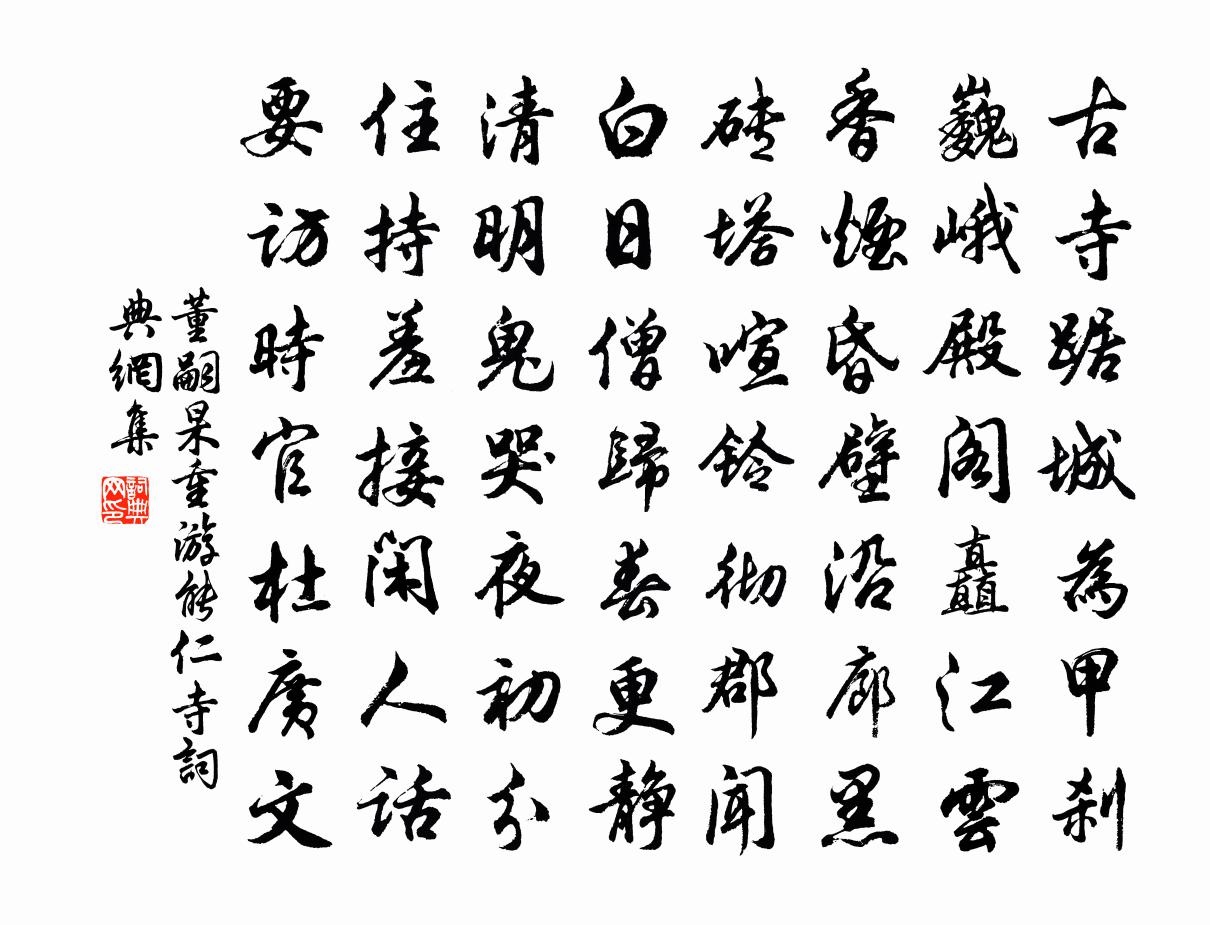 古寺踞城為甲刹
巍峨殿阁矗江雲
香煙昏壁沿廊黑
磚塔喧鈴彻郡闻
白日僧歸春更静
清明鬼哭夜初分
住持羞接闲人话
要访時官杜廣文
董嗣杲重游能仁寺詞
典網集
詞典
网印